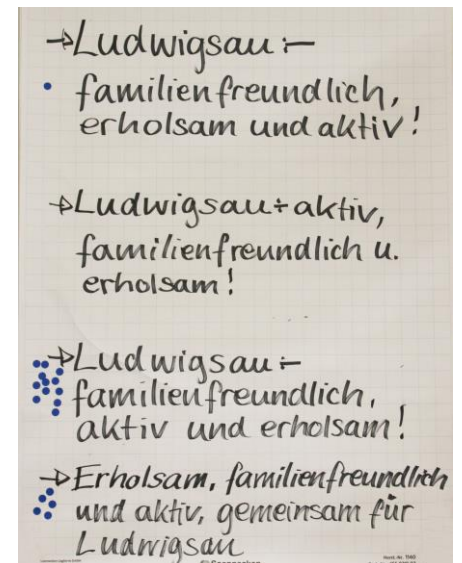 →Ludwigsau:–
familienfreundlich,
erholsam und aktiv!
→Ludwigsau÷aktiv,
familienfreundlich u.
erholsam!
→Ludwigsau:–
familienfreundlich,
aktiv und erholsam!
→Erholsam, familienfreundlich
und aktiv, gemeinsam für
Ludwigsau